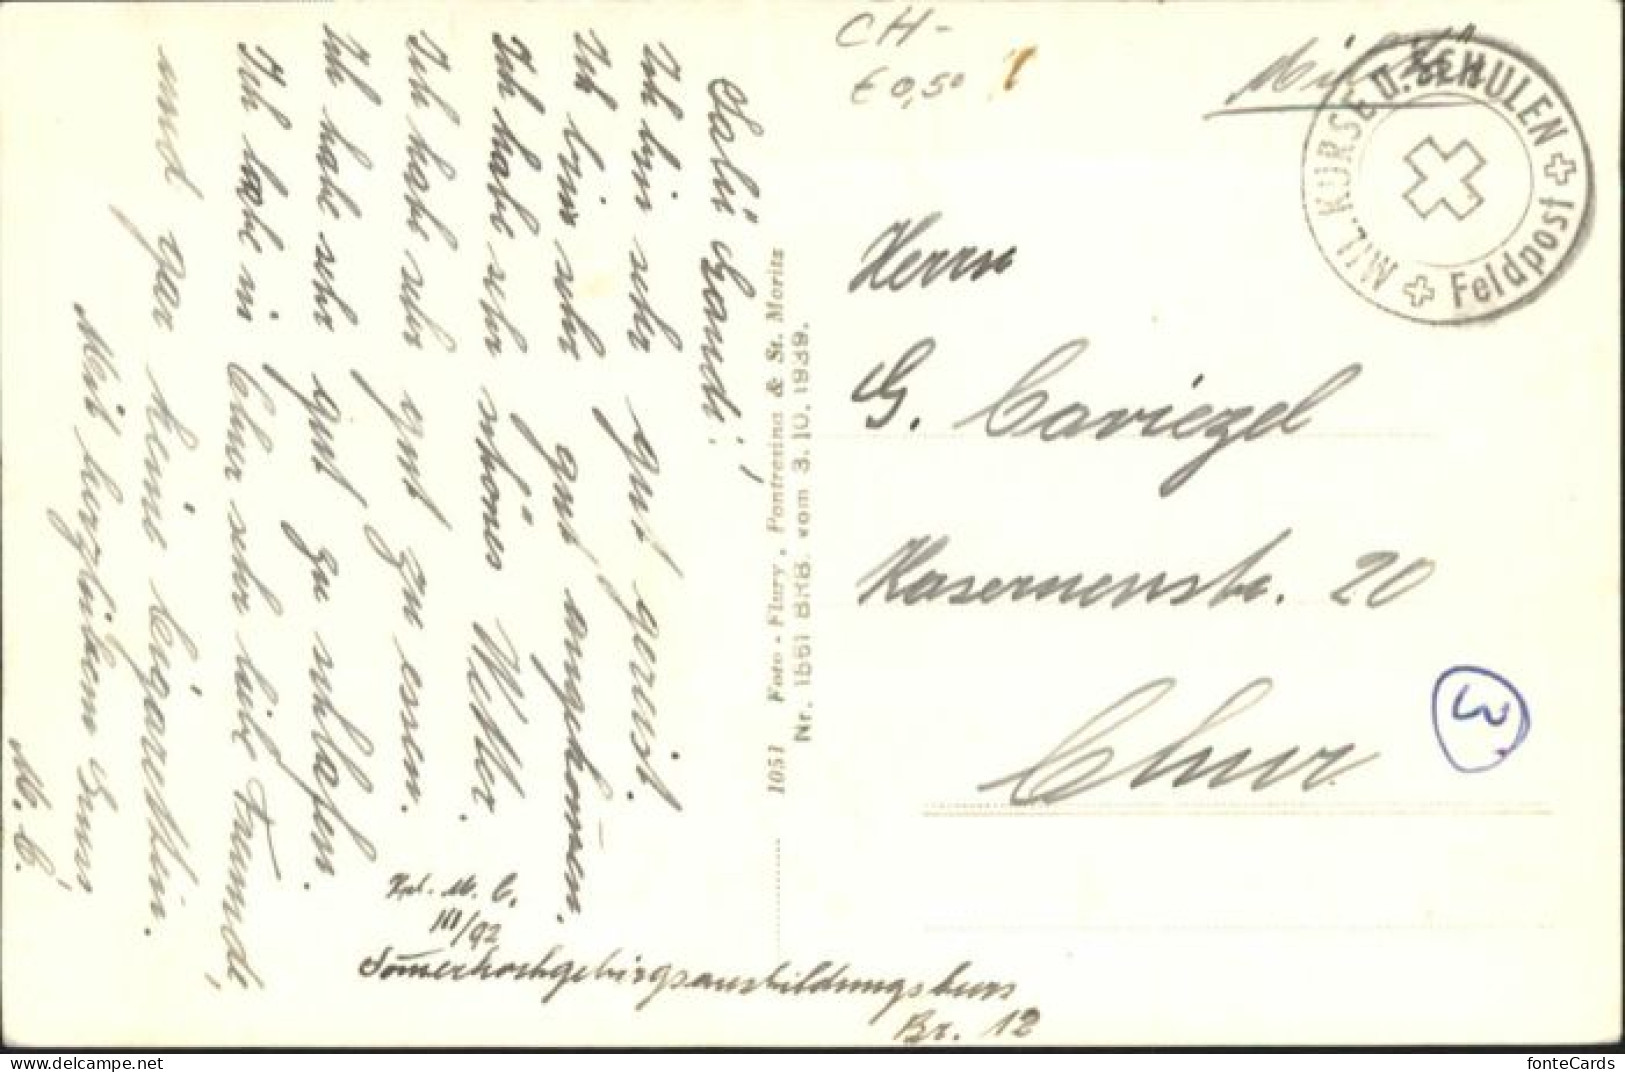 Salü Gandi!
Ich bin sehr gut gereist.
Ich bin sehr gut angekommen.
Ich habe sehr schönes Wetter.
Ich habe sehr gut zu essen.
Ich habe sehr gut zu schlafen.
Ich habe in Chur sehr liebe Freunde,
und gar keine Cigaretten.
Mit herzlichem Gruss
M. C.
M. C.
III/92
Sommerhochgebirgsausbildungskurs
Br. 12
1051 Foto - Flury, Pontresina & St. Moritz
Nr. 1551 BRB. vom 3. 10. 1939.
CH-
€ 0,50
Militär
MIL. KURSE U. SCHULEN
Feldpost
Herrn
G. Caviezel
Kasernenstr. 20
Chur
3
www.delcampe.net
fonteCards